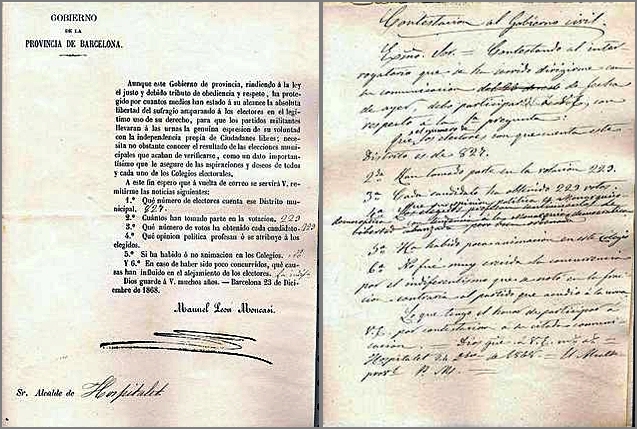 GOBIERNO
DE LA
PROVINCIA DE BARCELONA.
Aunque este Gobierno de provincia, rindiendo á la ley
el justo y debido tributo de obediencia y respeto, ha prote-
gido por cuantos medios han estado á su alcance la absoluta
libertad del sufragio amparando á los electores en el legí-
timo uso de su derecho, para que los partidos militantes
llevaran á las urnas la genuina espresion de su voluntad
con la independencia propia de Ciudadanos libres; necesi-
ta no obstante conocer el resultado de las elecciones muni-
cipales que acaban de verificarse, como un dato importan-
tísimo que le asegure de las aspiraciones y deseos de todos
y cada uno de los Colegios electorales.
A este fin espero que á vuelta de correo se servirá V. re-
mitirme las noticias siguientes:
1.° Qué número de electores cuenta ese Distrito muni-
cipal. 827.
2.° Cuántos han tomado parte en la votacion. 223
3.° Qué número de votos ha obtenido cada candidato. 223
4.° Qué opinion política profesan ó se atribuye á los
elegidos.
5.° Si ha habido ó no animacion en los Colegios.
Y 6.° En caso de haber sido poco concurridos, qué cau-
sas han influido en el alejamiento de los electores.
Dios guarde á V. muchos años. — Barcelona 23 de Dici-
embre de 1868.
Manuel Leon Moncasi.
Sr. Alcalde de Hospitalet
Contestacion al Gobierno civil.
Contestando al inter-
rogatorio que se ha servido dirigirme con
la comunicacion de fecha
de ayer, debo participar á V.E., con
respecto á la 1ª pregunta:
que los electores con que cuenta este
Distrito es de 827.
2ª Han tomado parte en la votacion 223.
3ª Cada candidato ha obtenido 223 votos.
4ª
5ª Ha habido poca animacion en este Colegio
6ª No fué muy crecida la concurrencia
por el indiferentismo que se notó en la frac-
cion contraria al partido que acudió á la urna
Lo que tengo el honor de participar á
V.E. por contestacion á su citada comuni-
cacion. — Dios gue á V.E. ms. as.
Hospitalet 24 Dbre de 1868. — El Alcalde